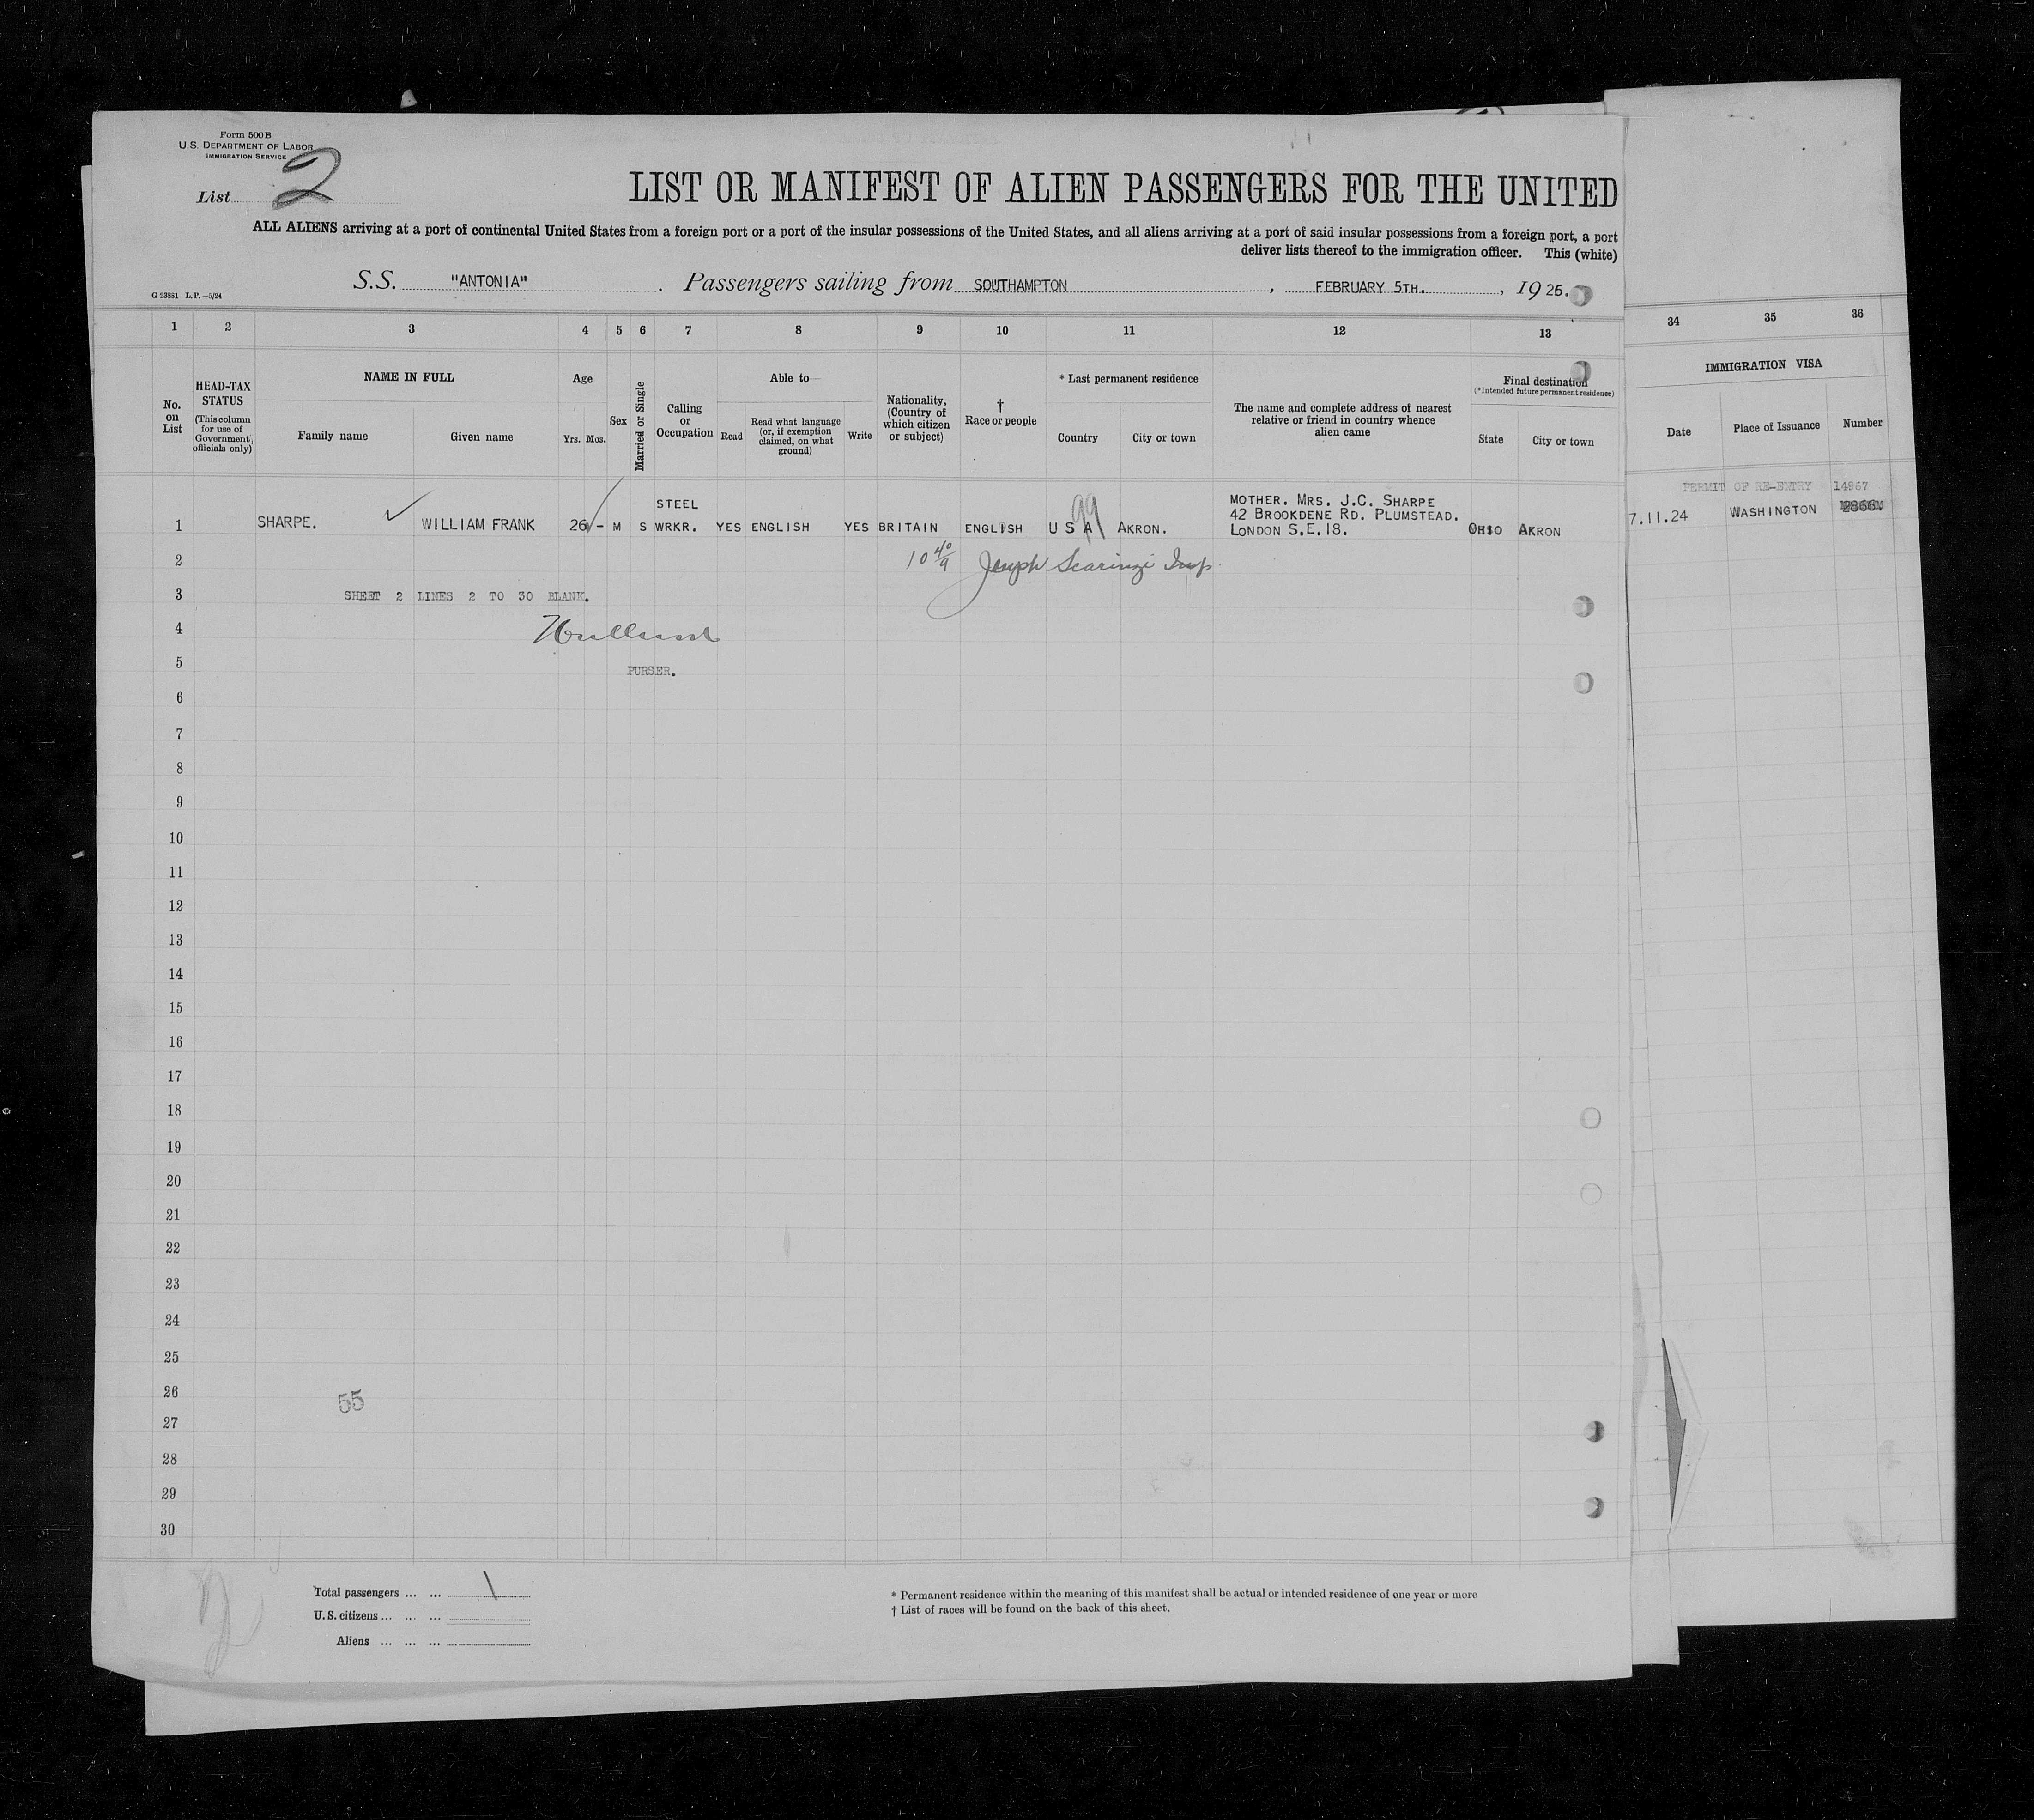 Form 500 B
U.S. DEPARTMENT OF LABOR
IMMIGRATION SERVICE
List 2
LIST OR MANIFEST OF ALIEN PASSENGERS FOR THE UNITED
ALL ALIENS arriving at a port of continental United States from a foreign port or a port of the insular possessions of the United States, and all aliens arriving at a port of said insular possessions from a foreign port, a port
deliver lists thereof to the immigration officer. This (white)
S.S. "ANTONIA" . Passengers sailing from SOUTHAMPTON , FEBRUARY 5TH. , 1925.
G 23881 L.P.—5/24
1 2 3 4 5 6 7 8 9 10 11 12 13 34 35 36
No. on List
HEAD-TAX STATUS
(This column for use of Government officials only)
NAME IN FULL
Family name Given name
Age
Yrs. Mos.
Sex
Married or Single
Calling or Occupation
Able to—
Read
Read what language (or, if exemption claimed, on what ground)
Write
Nationality, (Country of which citizen or subject)
† Race or people
* Last permanent residence
Country City or town
The name and complete address of nearest relative or friend in country whence alien came
Final destination
(*Intended future permanent residence)
State City or town
IMMIGRATION VISA
Date Place of Issuance Number
1 SHARPE. WILLIAM FRANK 26 - M S STEEL WRKR. YES ENGLISH YES BRITAIN ENGLISH U S A AKRON. MOTHER. MRS. J.C. SHARPE
42 BROOKDENE RD. PLUMSTEAD.
LONDON S.E.18. OHIO AKRON
99
PERMIT OF RE-ENTRY 14967
7.11.24 WASHINGTON
2 10 40/9 Joseph Scaringi Insp.
3 SHEET 2 LINES 2 TO 30 BLANK.
4
5 PURSER.
6
7
8
9
10
11
12
13
14
15
16
17
18
19
20
21
22
23
24
25
26
55
27
28
29
30
Total passengers ... ... 1
U.S. citizens ... ... ...
Aliens ... ... ...
* Permanent residence within the meaning of this manifest shall be actual or intended residence of one year or more
† List of races will be found on the back of this sheet.